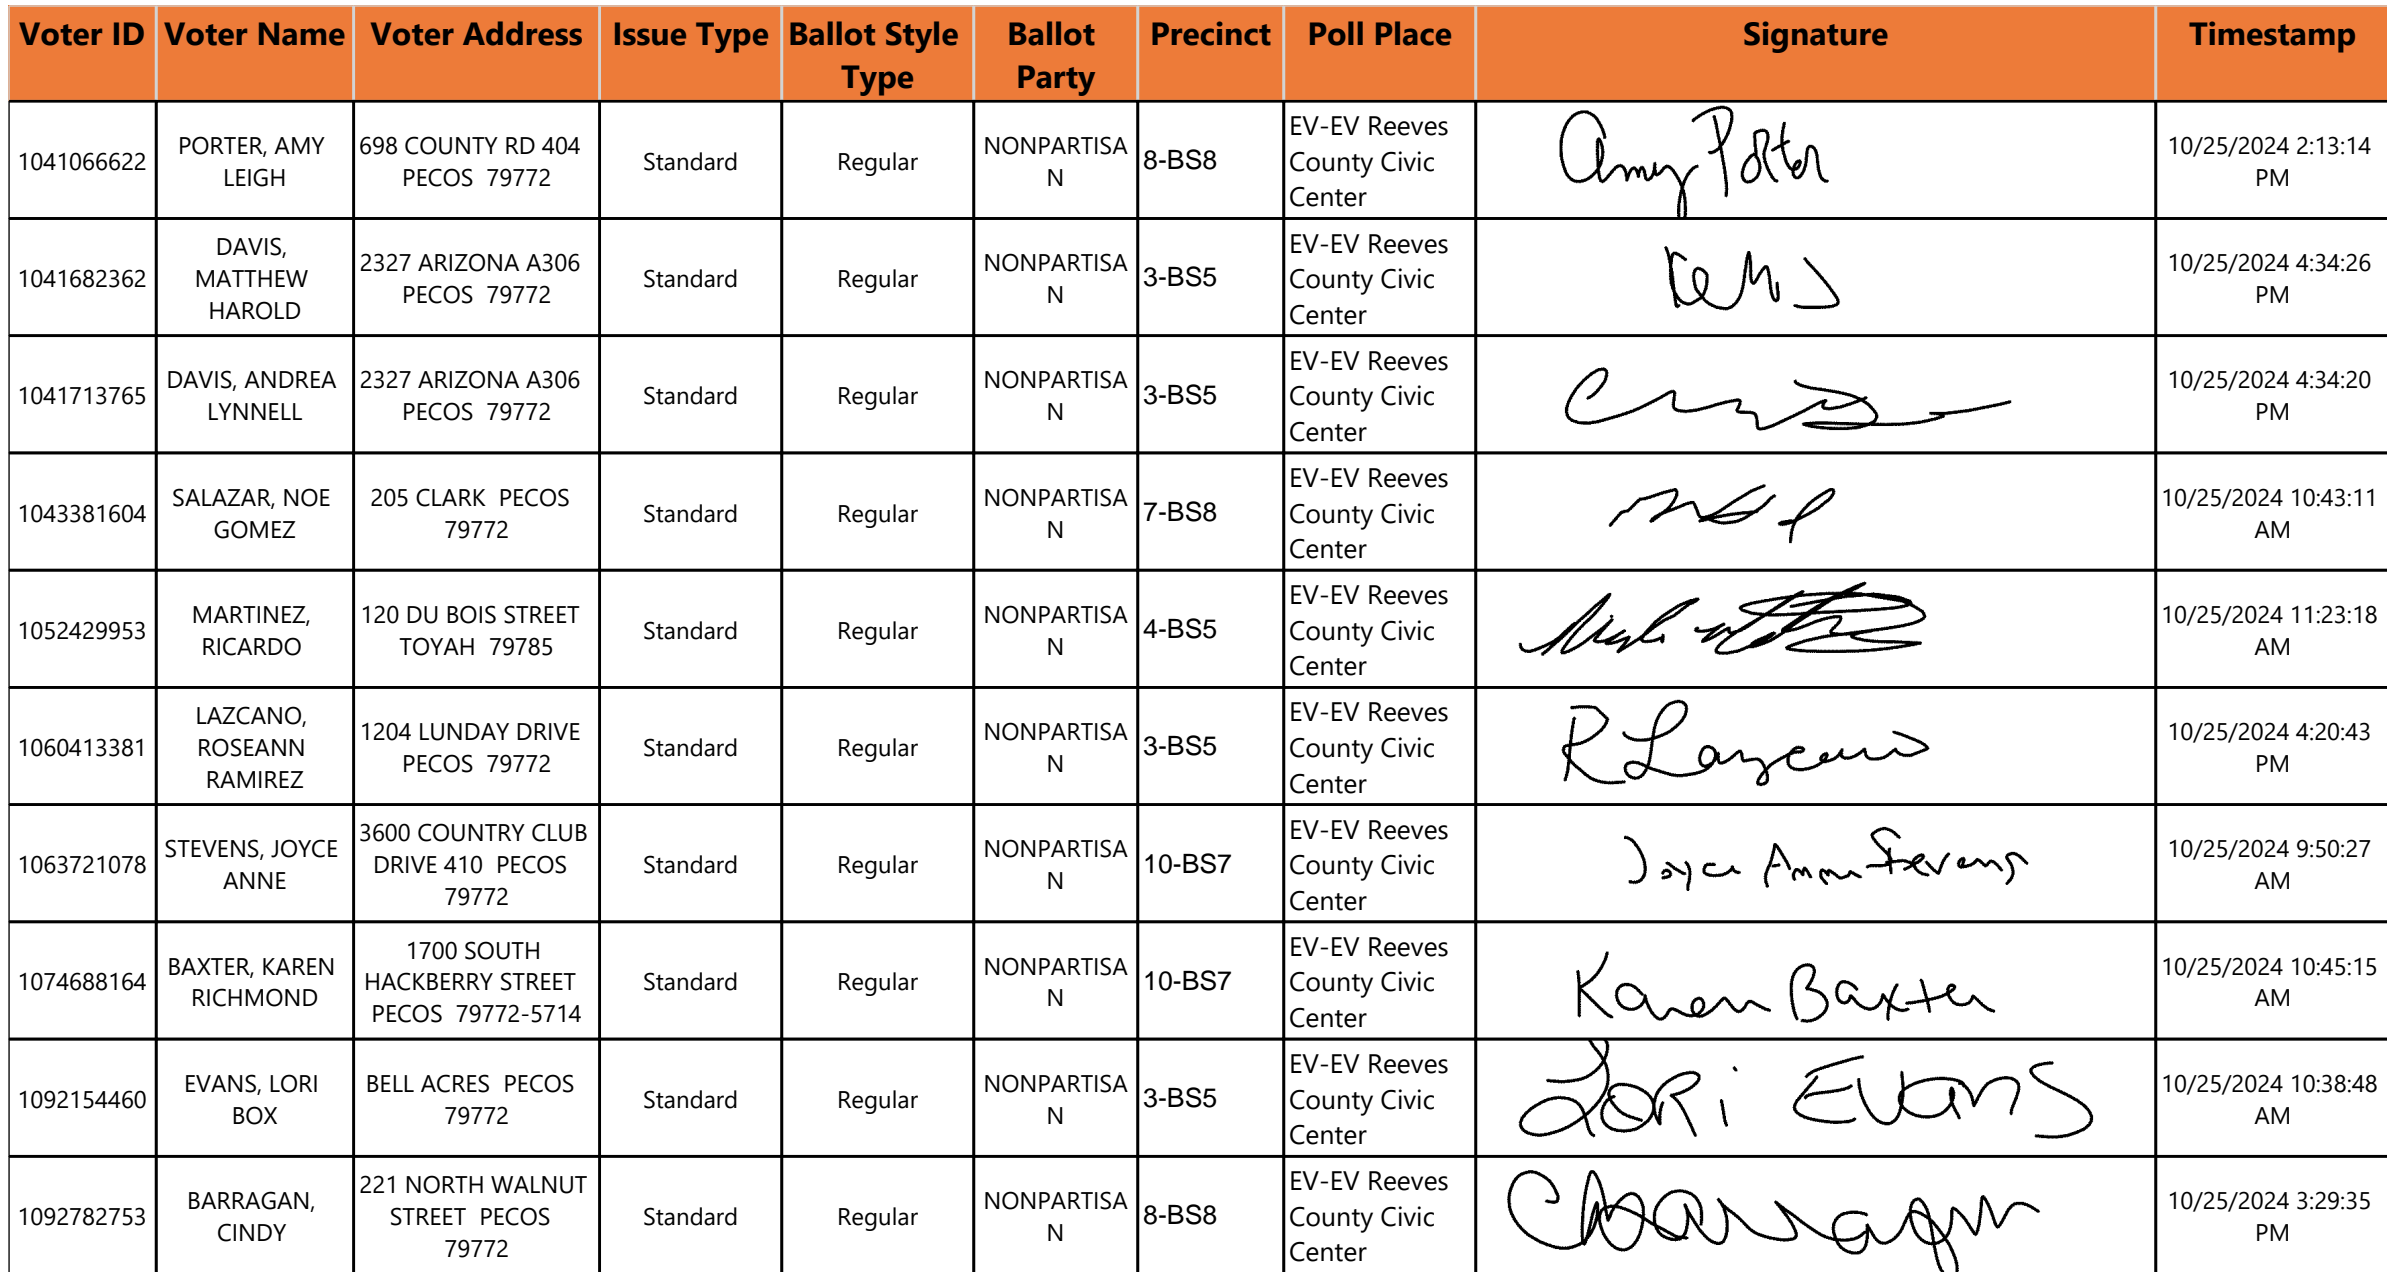 Voter ID Voter Name Voter Address Issue Type Ballot Style Type Ballot Party Precinct Poll Place Signature Timestamp
1041066622 PORTER, AMY LEIGH 698 COUNTY RD 404 PECOS 79772 Standard Regular NONPARTISAN 8-BS8 EV-EV Reeves County Civic Center Amy Porter 10/25/2024 2:13:14 PM
1041682362 DAVIS, MATTHEW HAROLD 2327 ARIZONA A306 PECOS 79772 Standard Regular NONPARTISAN 3-BS5 EV-EV Reeves County Civic Center 10/25/2024 4:34:26 PM
1041713765 DAVIS, ANDREA LYNNELL 2327 ARIZONA A306 PECOS 79772 Standard Regular NONPARTISAN 3-BS5 EV-EV Reeves County Civic Center 10/25/2024 4:34:20 PM
1043381604 SALAZAR, NOE GOMEZ 205 CLARK PECOS 79772 Standard Regular NONPARTISAN 7-BS8 EV-EV Reeves County Civic Center 10/25/2024 10:43:11 AM
1052429953 MARTINEZ, RICARDO 120 DU BOIS STREET TOYAH 79785 Standard Regular NONPARTISAN 4-BS5 EV-EV Reeves County Civic Center 10/25/2024 11:23:18 AM
1060413381 LAZCANO, ROSEANN RAMIREZ 1204 LUNDAY DRIVE PECOS 79772 Standard Regular NONPARTISAN 3-BS5 EV-EV Reeves County Civic Center R Lazcano 10/25/2024 4:20:43 PM
1063721078 STEVENS, JOYCE ANNE 3600 COUNTRY CLUB DRIVE 410 PECOS 79772 Standard Regular NONPARTISAN 10-BS7 EV-EV Reeves County Civic Center Joyce Anne Stevens 10/25/2024 9:50:27 AM
1074688164 BAXTER, KAREN RICHMOND 1700 SOUTH HACKBERRY STREET PECOS 79772-5714 Standard Regular NONPARTISAN 10-BS7 EV-EV Reeves County Civic Center Karen Baxter 10/25/2024 10:45:15 AM
1092154460 EVANS, LORI BOX BELL ACRES PECOS 79772 Standard Regular NONPARTISAN 3-BS5 EV-EV Reeves County Civic Center LORi EVans 10/25/2024 10:38:48 AM
1092782753 BARRAGAN, CINDY 221 NORTH WALNUT STREET PECOS 79772 Standard Regular NONPARTISAN 8-BS8 EV-EV Reeves County Civic Center CBarragan 10/25/2024 3:29:35 PM